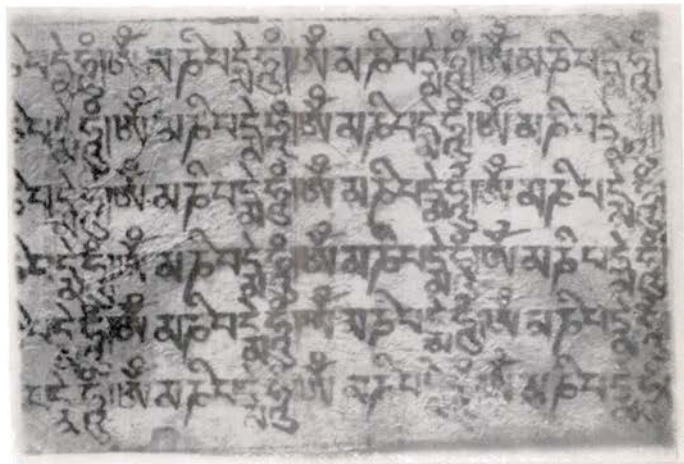 པདྨེ་ཧཱུྃ།ཨོཾ་མ་ཎི་པདྨེ་ཧཱུྃ།ཨོཾ་མ་ཎི་པདྨེ་ཧཱུྃ།ཨོཾ་མ་ཎི་པདྨེ་ཧཱུྃ།
པདྨེ་ཧཱུྃ།ཨོཾ་མ་ཎི་པདྨེ་ཧཱུྃ།ཨོཾ་མ་ཎི་པདྨེ་ཧཱུྃ།ཨོཾ་མ་ཎི་པདྨེ་ཧཱུྃ།
པདྨེ་ཧཱུྃ།ཨོཾ་མ་ཎི་པདྨེ་ཧཱུྃ།ཨོཾ་མ་ཎི་པདྨེ་ཧཱུྃ།ཨོཾ་མ་ཎི་པདྨེ་ཧཱུྃ།
པདྨེ་ཧཱུྃ།ཨོཾ་མ་ཎི་པདྨེ་ཧཱུྃ།ཨོཾ་མ་ཎི་པདྨེ་ཧཱུྃ།ཨོཾ་མ་ཎི་པདྨེ་ཧཱུྃ།
པདྨེ་ཧཱུྃ།ཨོཾ་མ་ཎི་པདྨེ་ཧཱུྃ།ཨོཾ་མ་ཎི་པདྨེ་ཧཱུྃ།ཨོཾ་མ་ཎི་པདྨེ་ཧཱུྃ།
པདྨེ་ཧཱུྃ།ཨོཾ་མ་ཎི་པདྨེ་ཧཱུྃ།ཨོཾ་མ་ཎི་པདྨེ་ཧཱུྃ།ཨོཾ་མ་ཎི་པདྨེ་ཧཱུྃ།